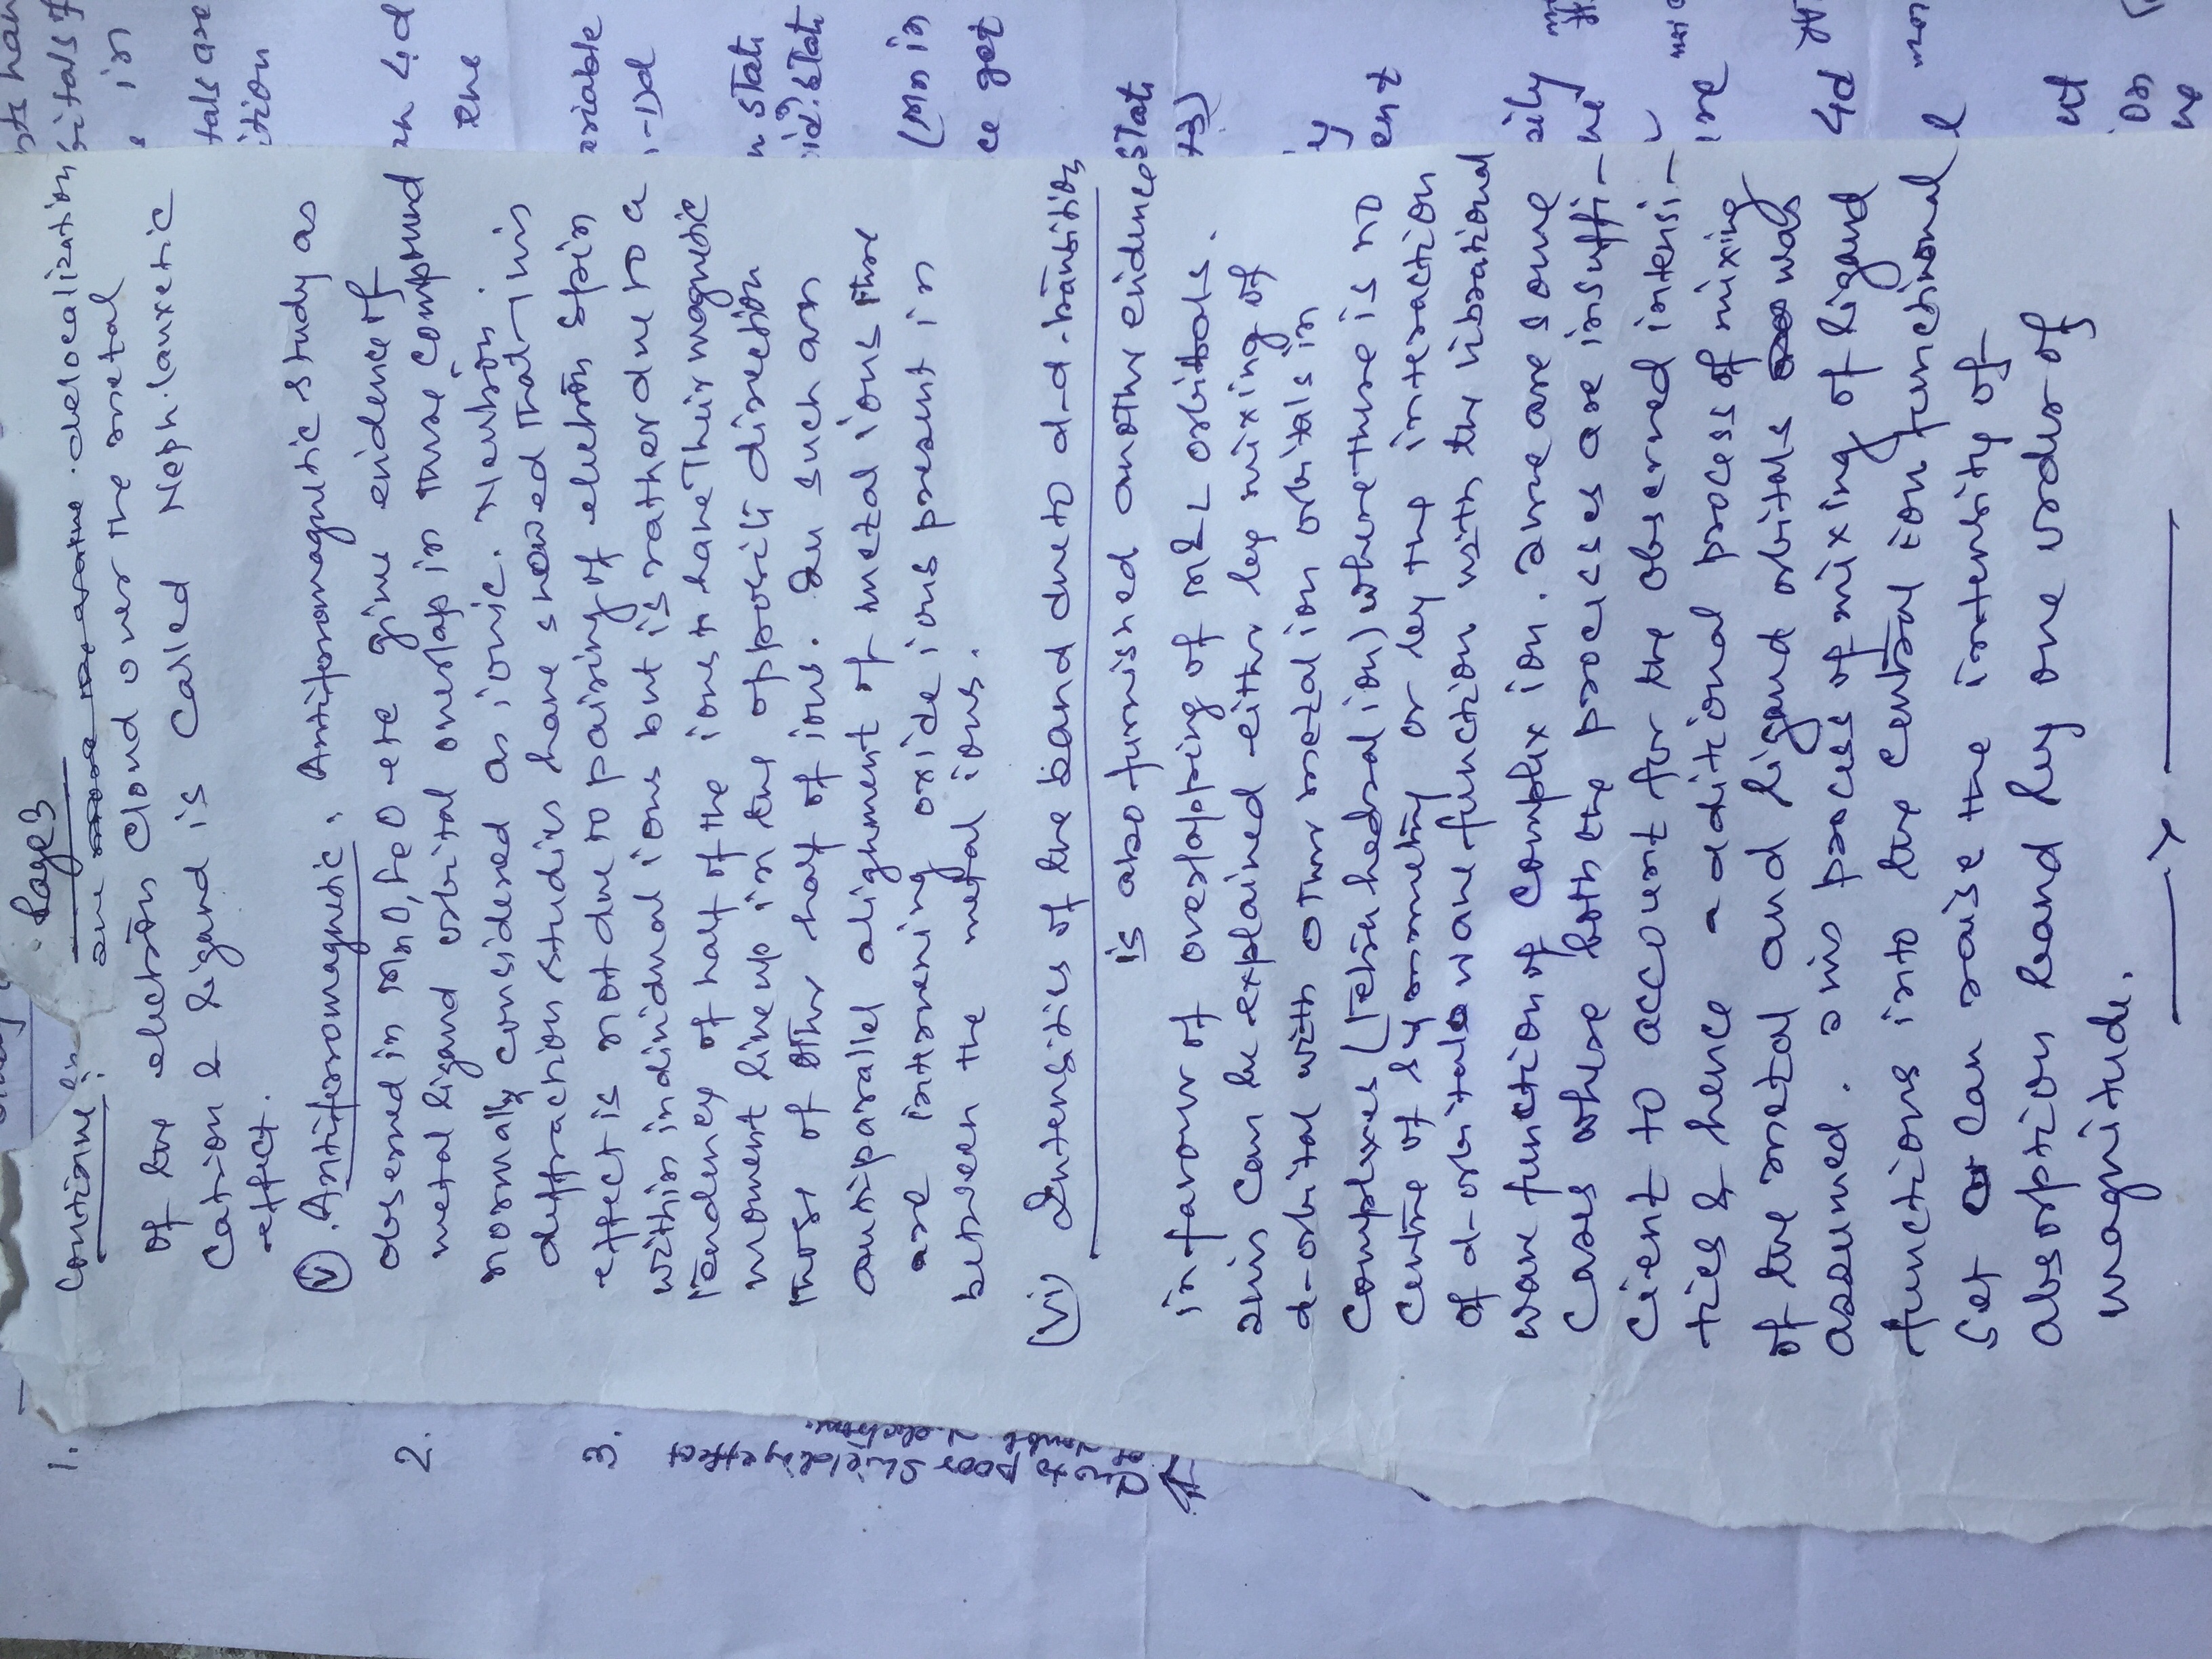 Page 3
Continue:
delocalization
of the electron cloud over the metal
Cation & ligand is called Neph.lauxetic
effect.
(V). Antiferromagnetic. Antiferromagnetic study as
observed in MnO, FeO etc give evidence of
metal ligand orbital overlap in these compound
normally considered as ionic. Neutron
deffraction studies have showed that this
effect is not due to pairing of electron spin
within individual ions but is rather due to a
tendency of half of the ions to have their magnetic
moment line up in the opposite direction
those of other half of ions. In such an
antiparallel alignment of metal ions there
are intervening oxide ions present in
between the metal ions.
(vi) Intensities of the band due to d-d-transition
is also furnished another evidence
in favour of overlapping of M&L orbitals.
This can be explained either by mixing of
d-orbital with other metal ion orbitals in
complexes (Tetrahedral ion) where there is no
centre of symmetry or by the interaction
of d-orbitals wave function with the vibrational
wave function of complex ion. There are some
cases where both the processes are insuffi-
cient to account for the observed intensi-
ties & hence a additional process of mixing
of the metal and ligand orbitals was
assumed. This process of mixing of ligand
functions into the central ion functional
set can raise the intensity of
absorption band by one order of
magnitude.
x
1.
2.
3.
poor shielding effect
tals are
ition
4d
the
ariable
n state
(Mn in
ce get
State
4d